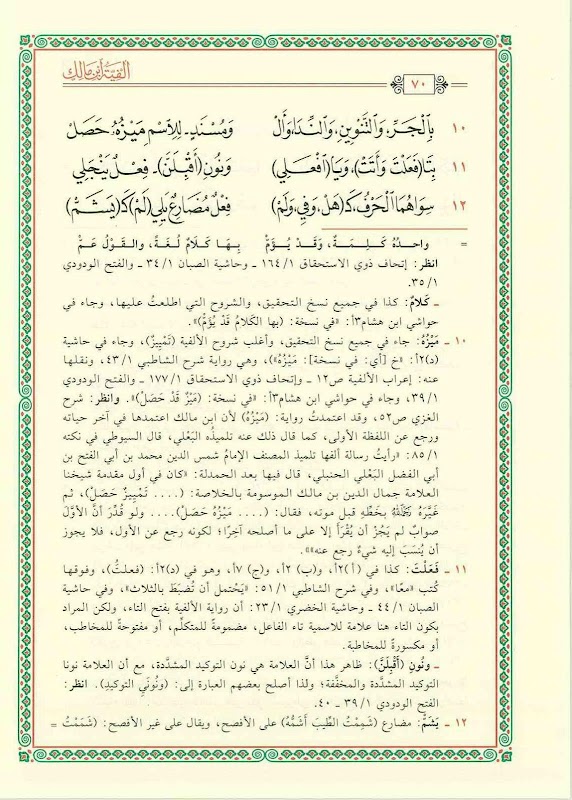 ألفية ابن مالك
٧٠
١٠ بِالْجَرِّ، وَالتَّنْوِينِ، وَالنِّدَا، وَأَلْ وَمُسْنَدٍ - لِلِاسْمِ مَيْزُهُ حَصَلْ
١١ بِتَا (فَعَلْتَ وَأَتَتْ)، وَيَا (افْعَلِي) وَنُونِ (أَقْبِلَنَّ) - فِعْلٌ يَنْجَلِي
١٢ سِوَاهُمَا الْحَرْفُ كَـ (هَلْ، وَفِي، وَلَمْ) فِعْلٌ مُضَارِعٌ يَلِي (لَمْ) كَـ (يَشَمّْ)
= واحدُهُ كَلِمَةٌ، وَقَدْ يُؤَمّْ بِهَا كَلَامٌ لُغَةً، والقَوْلُ عَمّْ
انظر: إتحاف ذوي الاستحقاق ١/ ١٦٤ ـ وحاشية الصبان ١/ ٣٤ ـ والفتح الودودي
١/ ٣٥.
ـ كَلَامٌ: كذا في جميع نسخ التحقيق، والشروح التي اطلعتُ عليها، وجاء في
حواشي ابن هشام٣أ: «في نسخة: (بها الكَلامُ قَدْ يُؤَمّْ)».
١٠ ـ مَيْزُهُ: جاء في جميع نسخ التحقيق، وأغلب شروح الألفية (تَمْيِيزٌ)، وجاء في حاشية
(د)٢أ: «خ [أي: في نسخة]: مَيْزُهُ»، وهي رواية شرح الشاطبي ١/ ٤٣، ونقلها
عنه: إعراب الألفية ص١٢ ـ وإتحاف ذوي الاستحقاق ١/ ١٧٧ ـ والفتح الودودي
١/ ٣٩، وجاء في حواشي ابن هشام٣أ: «في نسخة: (مَيْزٌ قَدْ حَصَلْ)». وانظر: شرح
الغزي ص٥٢، وقد اعتمدتُ رواية: (مَيْزُهُ) لأن ابن مالك اعتمدها في آخر حياته
ورجع عن اللفظة الأولى، كما قال ذلك عنه تلميذُه البَعْلي، قال السيوطي في نكته
١/ ٨٥: «رأيتُ رسالة ألفها تلميذ المصنف الإمامُ شمس الدين محمد بن أبي الفتح بن
أبي الفضل البَعْلي الحنبلي، قال فيها بعد الحمدلة: «كان في أول مقدمة شيخنا
العلامة جمال الدين بن مالك الموسومة بالخلاصة: (.... تَمْيِيزٌ حَصَلْ)، ثم
غيَّرَهُ رَحِمَهُ اللهُ بخَطِّهِ قبل موته، فقال: (.... مَيْزُهُ حَصَلْ).... ولو قُدِّرَ أنَّ الأوَّلَ
صوابٌ لم يَجُزْ أن يُقْرَأَ إلا على ما أصلحه آخِرًا؛ لكونه رجع عن الأول، فلا يجوز
أن يُنسَبَ إليه شيءٌ رجع عنه»».
١١ ـ فَعَلْتَ: كذا في (أ)٢أ، و(ب)٢أ، و(ج)٧أ، وهو في (د)٢أ: (فعلتُ)، وفوقها
كُتب «معًا»، وفي شرح الشاطبي ١/ ٥١: «يَحْتمل أن تُضبَطَ بالثلاث»، وفي حاشية
الصبان ١/ ٤٤ ـ وحاشية الخضري ١/ ٢٣: أن رواية الألفية بفتح التاء، ولكن المراد
بكون التاء هنا علامة للاسمية تاء الفاعل، مضمومةً للمتكلِّم، أو مفتوحةً للمخاطب،
أو مكسورةً للمخاطبة.
ـ ونُونِ (أَقْبِلَنَّ): ظاهر هذا أنَّ العلامة هي نون التوكيد المشدَّدة، مع أن العلامة نونا
التوكيد المشدَّدة والمخفَّفة؛ ولذا أصلح بعضهم العبارة إلى: (ونُونَيِ التوكيدِ). انظر:
الفتح الودودي ١/ ٣٩ ـ ٤٠.
١٢ ـ يَشَمُّ: مضارع (شَمِمْتُ الطِّيبَ أَشَمُّهُ) على الأفصح، ويقال على غير الأفصح: (شَمَمْتُ =